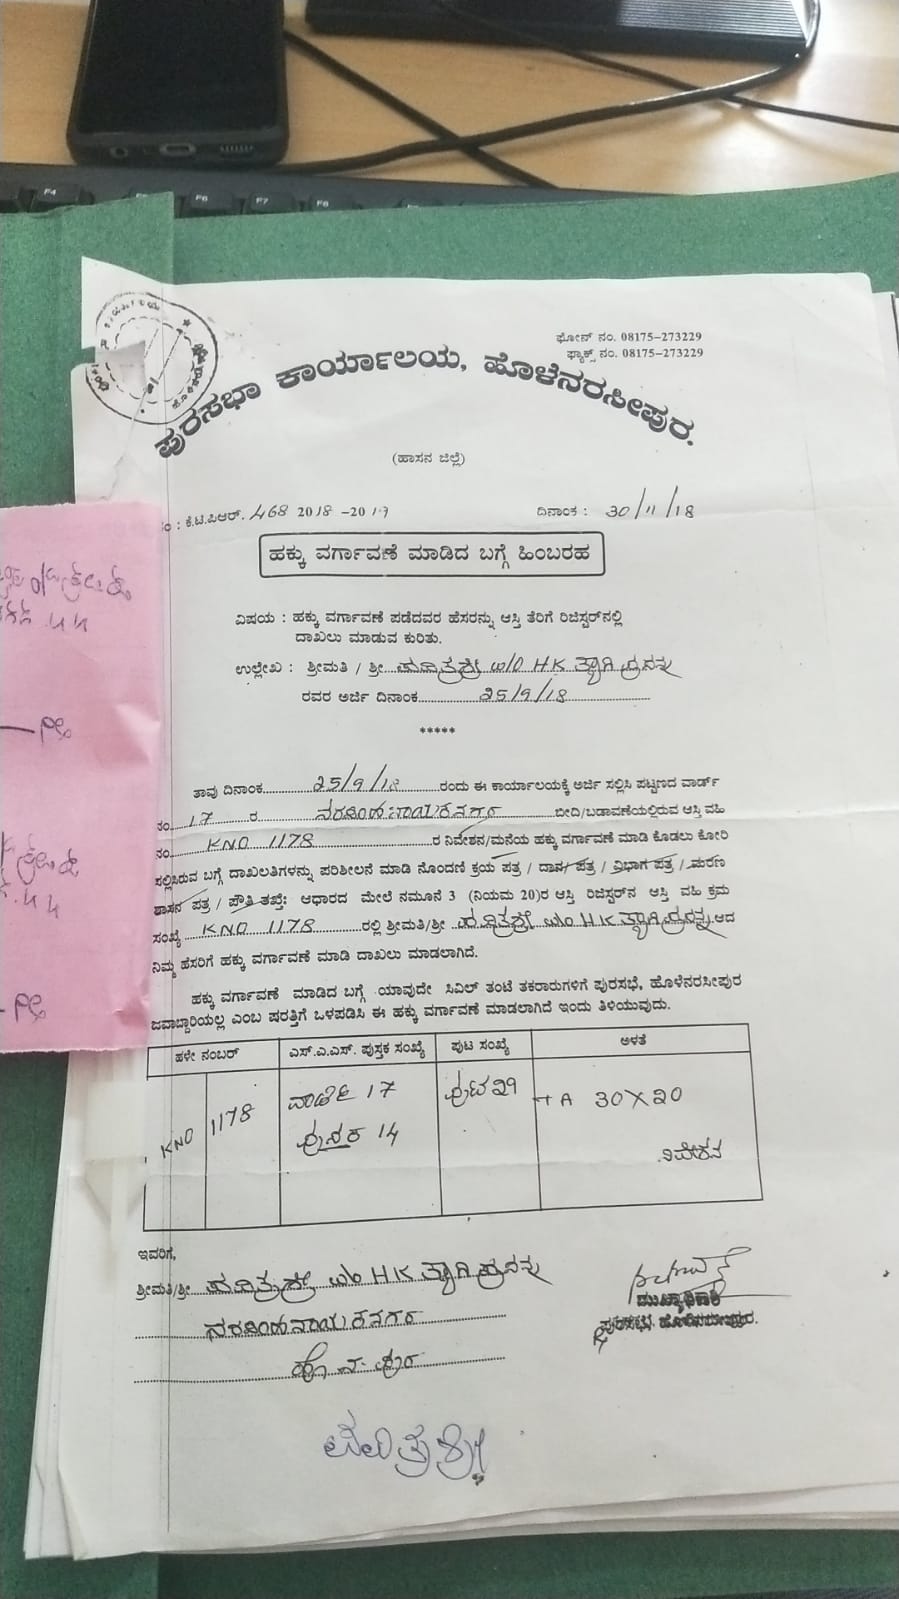 ಫೋನ್ ನಂ. 08175-273229
ಫ್ಯಾಕ್ಸ್ ನಂ. 08175-273229
ಪುರಸಭಾ ಕಾರ್ಯಾಲಯ, ಹೊಳೆನರಸೀಪುರ.
(ಹಾಸನ ಜಿಲ್ಲೆ)
ನಂ : ಕೆ.ಟಿ.ಪಿಆರ್. 468 2018 -2017 ದಿನಾಂಕ : 30/11/18
ಹಕ್ಕು ವರ್ಗಾವಣೆ ಮಾಡಿದ ಬಗ್ಗೆ ಹಿಂಬರಹ
ವಿಷಯ : ಹಕ್ಕು ವರ್ಗಾವಣೆ ಪಡೆದವರ ಹೆಸರನ್ನು ಆಸ್ತಿ ತೆರಿಗೆ ರಿಜಿಸ್ಟರ್‌ನಲ್ಲಿ
ದಾಖಲು ಮಾಡುವ ಕುರಿತು.
ಉಲ್ಲೇಖ : ಶ್ರೀಮತಿ / ಶ್ರೀ ಪವಿತ್ರಶ್ರೀ w/o HK ತ್ಯಾಗಿ ಪ್ರಸನ್ನ
ರವರ ಅರ್ಜಿ ದಿನಾಂಕ 25/9/18
*****
ತಾವು ದಿನಾಂಕ 25/9/18 ರಂದು ಈ ಕಾರ್ಯಾಲಯಕ್ಕೆ ಅರ್ಜಿ ಸಲ್ಲಿಸಿ ಪಟ್ಟಣದ ವಾರ್ಡ್
ನಂ. 17 ರ ನರಸಿಂಹನಾಯಕನಗರ ಬೀದಿ/ಬಡಾವಣೆಯಲ್ಲಿರುವ ಆಸ್ತಿ ವಹಿ
ನಂ. KNO 1178 ರ ನಿವೇಶನ/ಮನೆಯ ಹಕ್ಕು ವರ್ಗಾವಣೆ ಮಾಡಿ ಕೊಡಲು ಕೋರಿ
ಸಲ್ಲಿಸಿರುವ ಬಗ್ಗೆ ದಾಖಲತಿಗಳನ್ನು ಪರಿಶೀಲನೆ ಮಾಡಿ ನೊಂದಣಿ ಕ್ರಯ ಪತ್ರ / ದಾನ ಪತ್ರ / ವಿಭಾಗ ಪತ್ರ / ಮರಣ
ಶಾಸನ ಪತ್ರ / ಪೌತಿ ತಖ್ತೆ: ಆಧಾರದ ಮೇಲೆ ನಮೂನೆ 3 (ನಿಯಮ 20)ರ ಆಸ್ತಿ ರಿಜಿಸ್ಟರ್‌ನ ಆಸ್ತಿ ವಹಿ ಕ್ರಮ
ಸಂಖ್ಯೆ KNO 1178 ರಲ್ಲಿ ಶ್ರೀಮತಿ/ಶ್ರೀ ಪವಿತ್ರಶ್ರೀ w/o HK ತ್ಯಾಗಿ ಪ್ರಸನ್ನ ಆದ
ನಿಮ್ಮ ಹೆಸರಿಗೆ ಹಕ್ಕು ವರ್ಗಾವಣೆ ಮಾಡಿ ದಾಖಲು ಮಾಡಲಾಗಿದೆ.
ಹಕ್ಕು ವರ್ಗಾವಣೆ ಮಾಡಿದ ಬಗ್ಗೆ ಯಾವುದೇ ಸಿವಿಲ್ ತಂಟೆ ತಕರಾರುಗಳಿಗೆ ಪುರಸಭೆ, ಹೊಳೆನರಸೀಪುರ
ಜವಾಬ್ದಾರಿಯಲ್ಲ ಎಂಬ ಷರತ್ತಿಗೆ ಒಳಪಡಿಸಿ ಈ ಹಕ್ಕು ವರ್ಗಾವಣೆ ಮಾಡಲಾಗಿದೆ ಇಂದು ತಿಳಿಯುವುದು.
ಹಳೇ ನಂಬರ್ ಎಸ್.ಎ.ಎಸ್. ಪುಸ್ತಕ ಸಂಖ್ಯೆ ಪುಟ ಸಂಖ್ಯೆ ಅಳತೆ
KNO 1178 ವಾರ್ಡ್ 17 ಪುಟ 29 30X20
ಪುಸ್ತಕ 14 ನಿವೇಶನ
ಇವರಿಗೆ,
ಶ್ರೀಮತಿ/ಶ್ರೀ ಪವಿತ್ರಶ್ರೀ w/o HK ತ್ಯಾಗಿ ಪ್ರಸನ್ನ
ನರಸಿಂಹನಾಯಕನಗರ
ಹೊ.ನ.ಪುರ
ಮುಖ್ಯಾಧಿಕಾರಿ
ಪುರಸಭೆ, ಹೊಳೆನರಸೀಪುರ.
ಪವಿತ್ರಶ್ರೀ
F4
F6
F7
F8